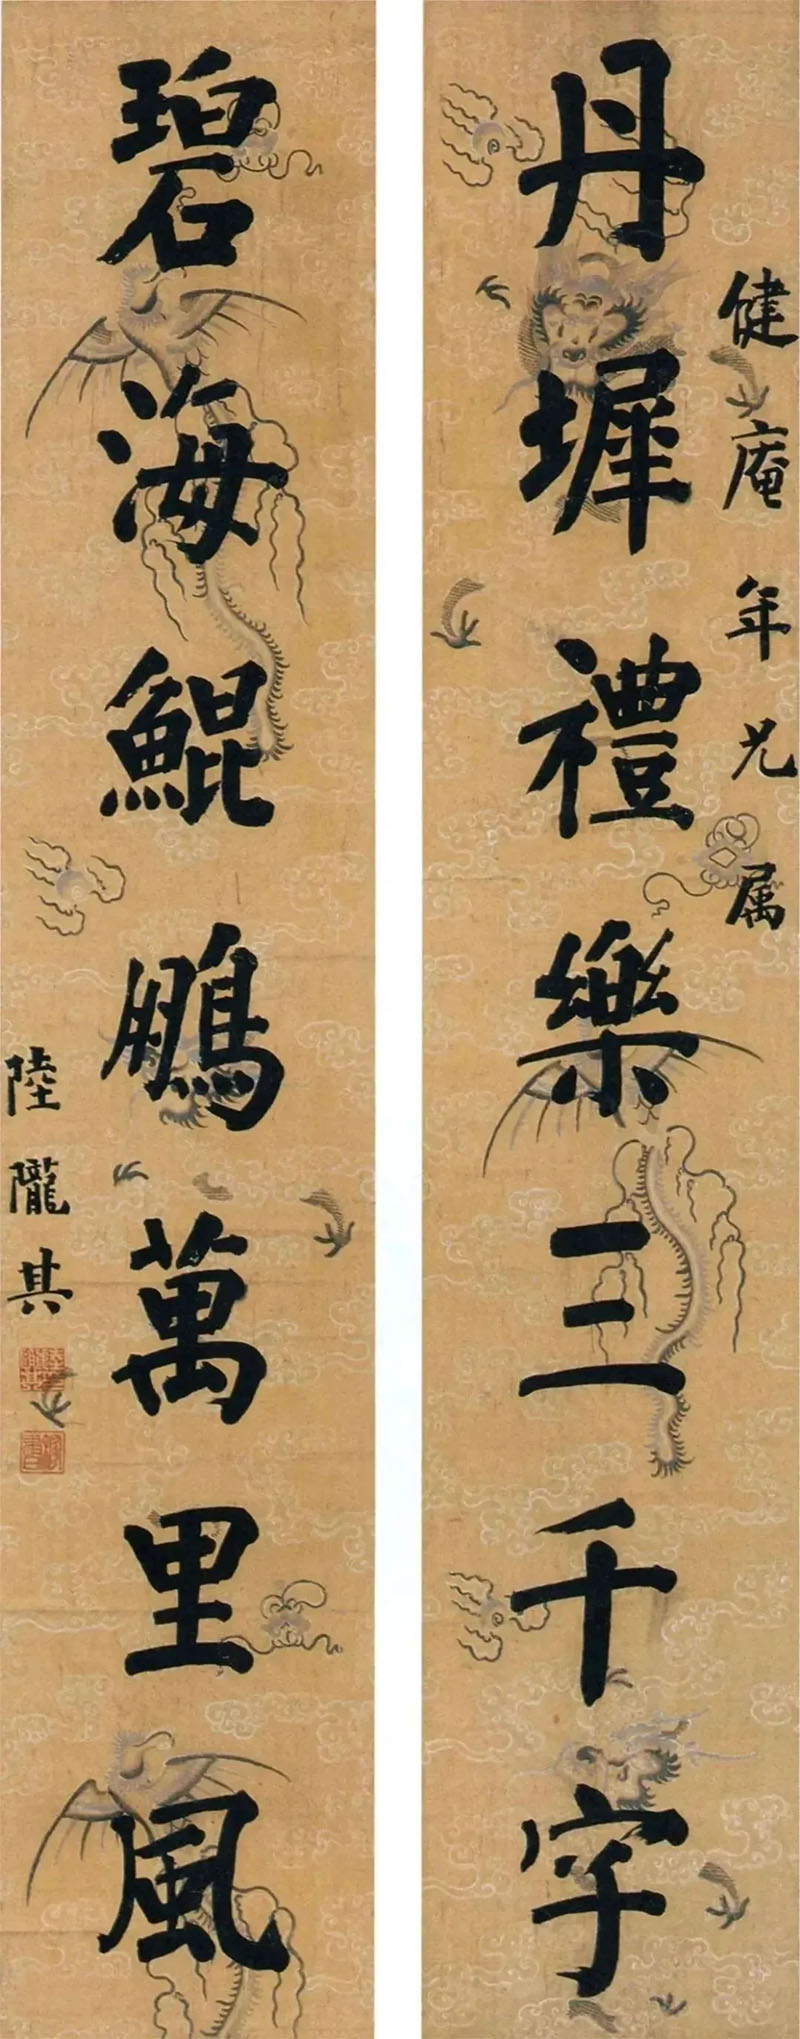 健庵年兄属
丹墀禮樂三千字
碧海鯤鵬萬里風
陸隴其